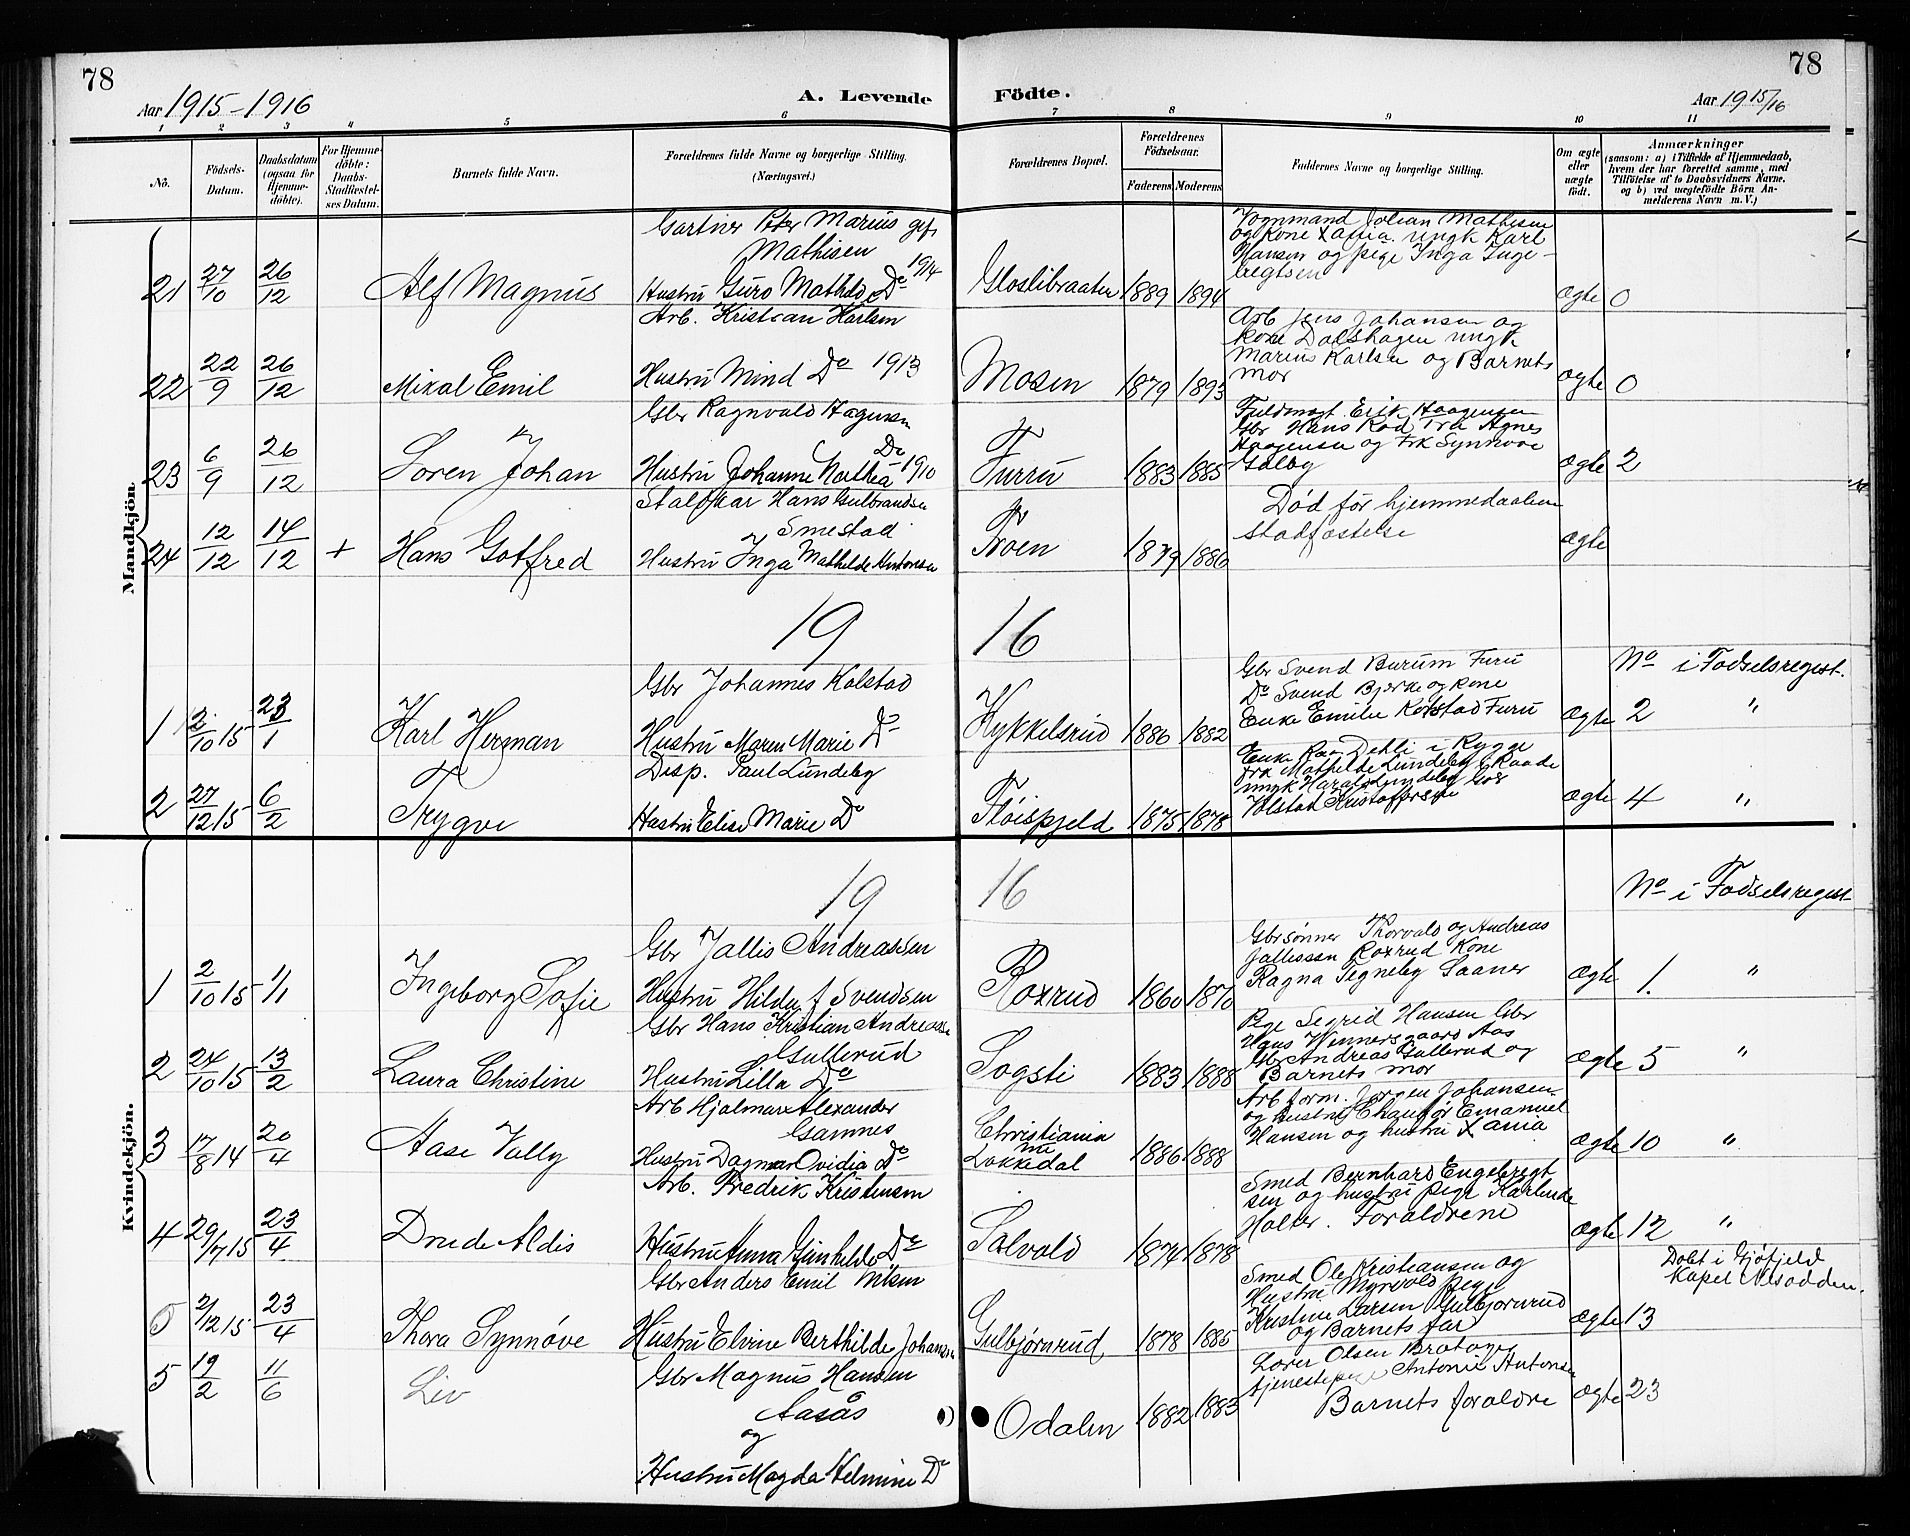 78
78
Aar 1915-1916
A. Levende
Födte.
Aar 1915/16
1 2 3 4 5 6 7 8 9 10 11
No.
Födsels-
Datum.
Daabsdatum
(ogsaa for
Hjemme-
döbte).
For Hjemme-
döbte:
Daabs-
Stadfæstel-
ses Datum.
Barnets fulde Navn.
Forældrenes fulde Navne og borgerlige Stilling.
(Næringsvei.)
Forældrenes Bopæl.
Forældrenes
Födselsaar.
Faderens Moderens
Faddernes Navne og borgerlige Stilling.
Om ægte
eller
uægte
født.
Anmærkninger
(saasom: a) i Tilfælde af Hjemmedaab,
hvem der har forrettet samme, med
Tilföielse af to Daabsvidners Navne.
og b) ved uægtefödte Börn An-
melderens Navn m. V.)
Mandkjön.
Gartner Peter Marius gif.
Mathisen 1914
21 27/10 26/12 Alf Magnus Hustru Guro Mathilde Do Gloslibraaten 1889 1894
Vognmand Johan Mathisen
og kone Xania. ungk Karl
Hansen og pige Inga Inge-
bregtsen
ægte 0
Arb. Kristian Karlsen
22 22/9 26/12 Mikal Emil Hustru Mind Do 1913 Mosen 1879 1893
Arb Jens Johansen og
kone Dalshagen ungk
Marius Karlsen og Barnets
mor
ægte 0
Gbr Ragnvald Hagensen
23 6/9 26/12 Soren Johan Hustru Johanne Mathea Do 1910 Furru 1883 1885
Fuldmægt. Erik Haagensen
Gbr Hans Rød Fra Agnes
Haagensen og Frk Synnøve
Solby
ægte 2
Staldkar Hans Gulbrandsen
Smestad
24 12/12 14/12 + Hans Gotfred Hustru Inga Mathilde Antonsen Froen 1879 1886
Død før hjemmedaaben
Stadfæstelse
ægte
19 16
No i Fodselsregist.
Gbr Johannes Kolstad
1 2/10 15 23/1 Karl Herman Hustru Maren Marie Do Kykkelsrud 1886 1882
Gbr Svend Burum Furu
Do Svend Bjerke og kone
Enke Emilie Kolstad Furu
ægte 2 "
Disp. Paul Lundeby
2 27/12 15 6/2 Trygve Hustru Elise Marie Do Fløispjeld 1875 1878
Enke Dehli i Rygge
frk Mathilde Lundeby Raade
ungk Harald Lundeby
Volstad Kristoffersen
ægte 4 "
Kvindekjön.
19 16
No i Fodselsregist
Gbr Jallis Andreassen
1 2/10 15 1/1 Ingeborg Sofie Hustru Hilda f Svendsen Roxrud 1860 1870
Gbrsønner Thorvald og Andreas
Jallissen Roxrud Kone
Ragna Tegneby Saaner
ægte 1. "
Gbr Hans Kristian Andreassen
Gullerud
2 24/10 15 13/2 Laura Christine Hustru Lilla Do Sogsti 1883 1888
Pige Segrid Hansen Gbr
Hans Vinnersgaard Aas
Gbr Andreas Gullerud og
Barnets mor
ægte 5 "
Arb Hjalmar Alexander
Gamnes
3 17/8 14 20/4 Aase Vally Hustru Dagmar Ovidia Do Christiania
nu
Løkkedal 1886 1888
Arb form. Jørgen Johansen
og hustru Chauför Emanuel
Hansen og hustru Xania
ægte 10 "
Arb. Fredrik Kristensen
4 29/7 15 23/4 Drude Aldis Hustru Anna Gunhilde Do Solvold 1874 1878
Smed Bernhard Engebregt
sen og hustru pige Karlinde
Holter. Forældrene
ægte 12 "
Gbr Anders Emil Nilsen
5 2/12 15 23/4 Thora Synnøve Hustru Elvine Berthilde Johansen Gulbjørnrud 1878 1885
Smed Ole Kristiansen og
Hustru Myrvold Pige
Kristine Larsen Gulbjornrud
og Barnets far
ægte 13
Døbt i Gjøfjeld
Kapel Nesodden.
Gbr Magnus Hansen
Aasås
og
5 19/2 11/6 Liv Hustru Magda Helmine Do Odalen 1882 1883
Olsen Bratager
tjenestepige Antonie Antonsen
Barnets foraldre
ægte 23